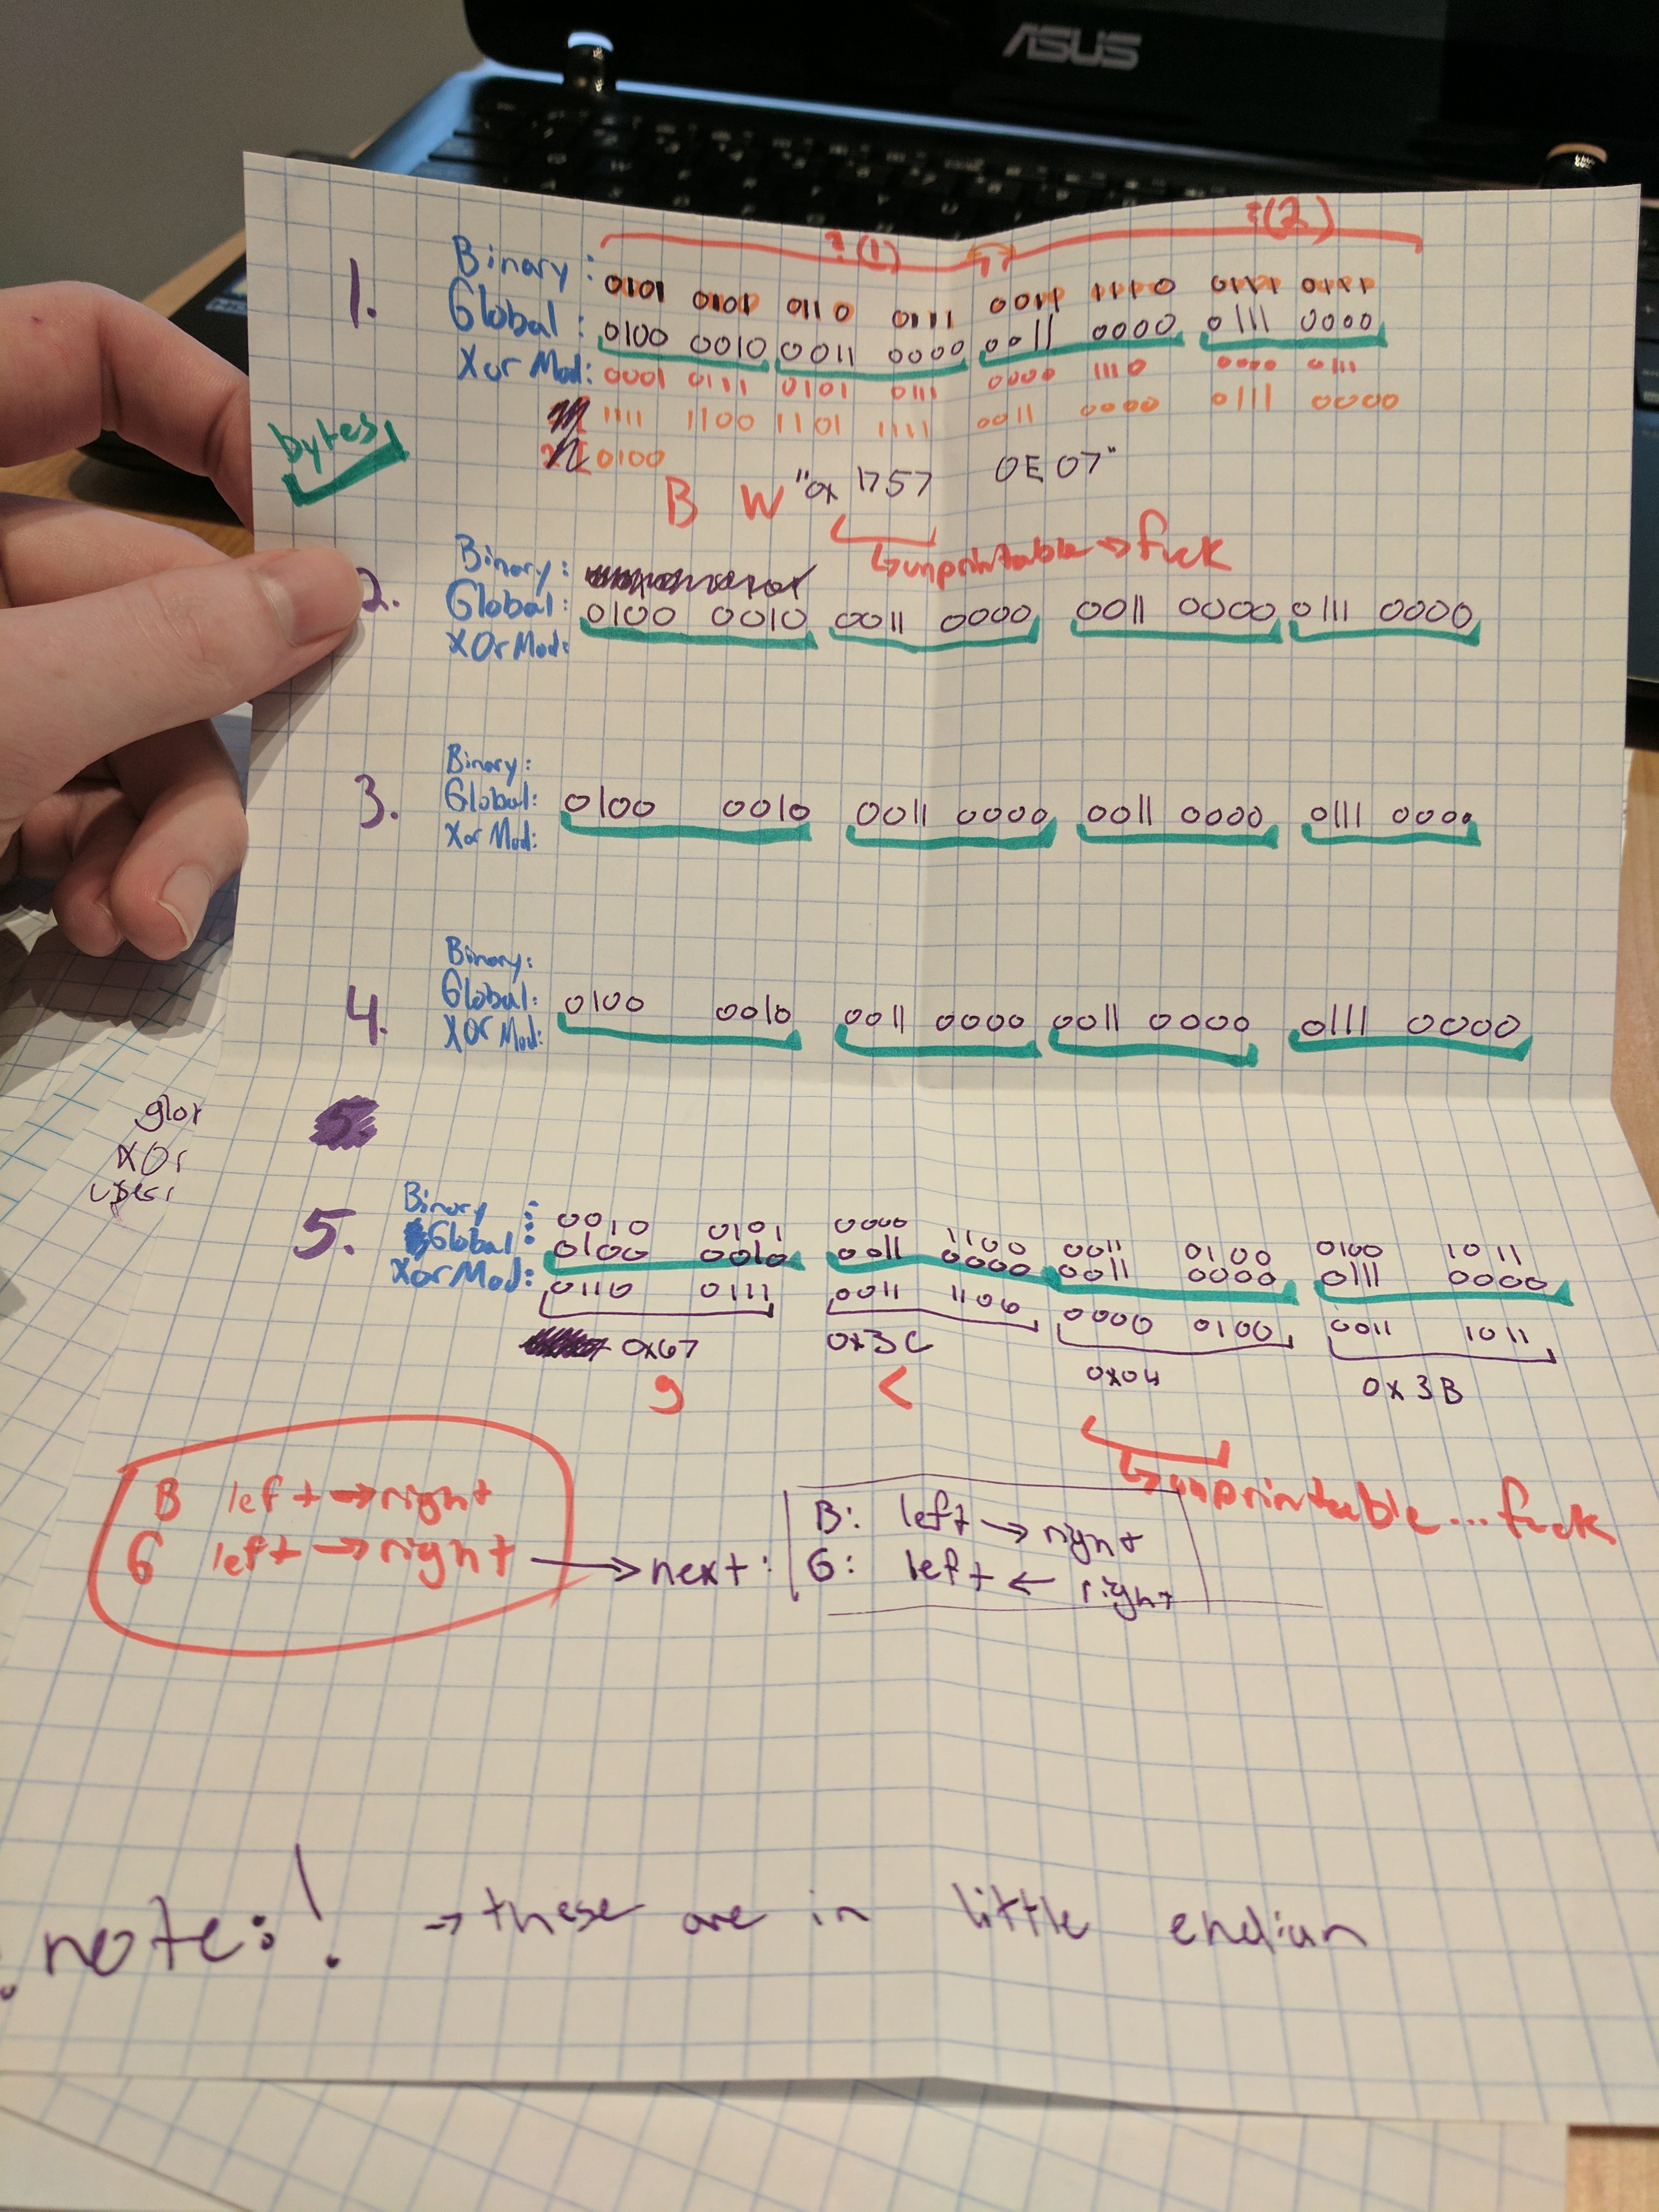 ASUS
?(1) ?(2)
1. Binary: 0101 0101 0110 0111 0011 1110 0111 0111
Global: 0100 0010 0011 0000 0011 0000 0111 0000
Xor Mod: 0001 0111 0101 0111 0000 1110 0000 0111
1111 1100 1101 1111 0011 0000 0111 0000
0100
bytes
B W "0x 1757 0E 07"
unprintable → fuck
2. Binary:
Global: 0100 0010 0011 0000 0011 0000 0111 0000
XOr Mod:
3. Binary:
Global: 0100 0010 0011 0000 0011 0000 0111 0000
Xor Mod:
4. Binary:
Global: 0100 0010 0011 0000 0011 0000 0111 0000
XOr Mod:
5.
XOr
5. Binary : 0010 0101 0000 1100 0011 0100 0100 1011
Global : 0100 0010 0011 0000 0011 0000 0111 0000
Xor Mod: 0110 0111 0011 1100 0000 0100 0011 1011
0x67 0x3C 0x04 0x3B
g <
unprintable... fuck
B left → right
G left → right → next: B: left → right
G: left ← right
note:! → these are in little endian